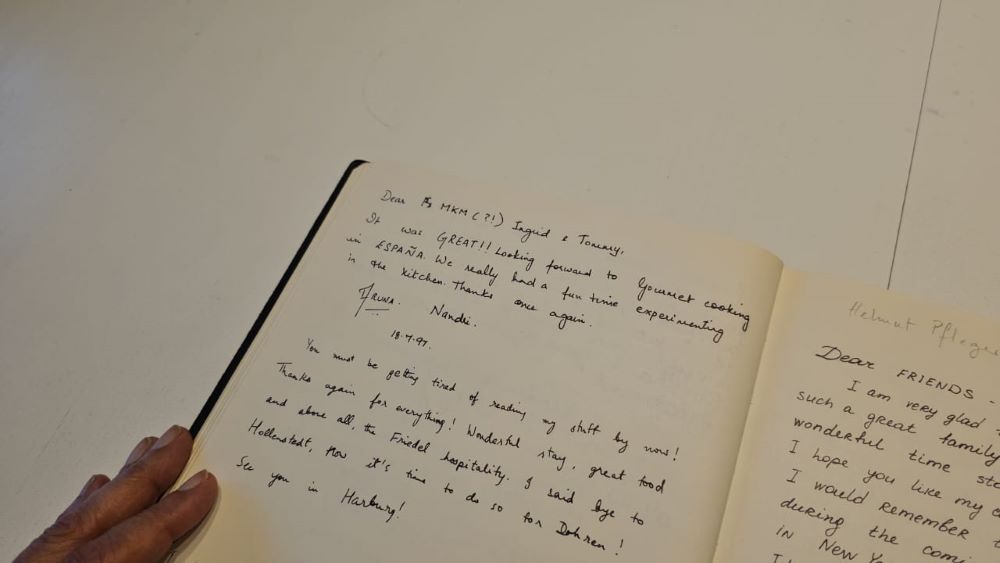 Dear MKM (?!) Ingrid & Tommy,
It was GREAT!! Looking forward to Gourmet cooking
in ESPAÑA. We really had a fun time experimenting
in the kitchen. Thanks once again.
ARUNA. Nandu.
18.7.97.
You must be getting tired of reading my stuff by now!
Thanks again for everything! Wonderful stay, great food
and above all, the Friedel hospitality. I said bye to
Hollenstedt, now it's time to do so for Dohren!
See you in Harburg!
Helmut
Dear FRIENDS -
I am very glad
such a great family
wonderful time
I hope you like my
I would remember
during the
in New